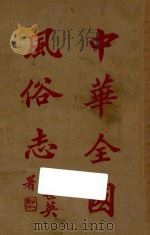 中華全國
風俗志
英
著
mtoou.info